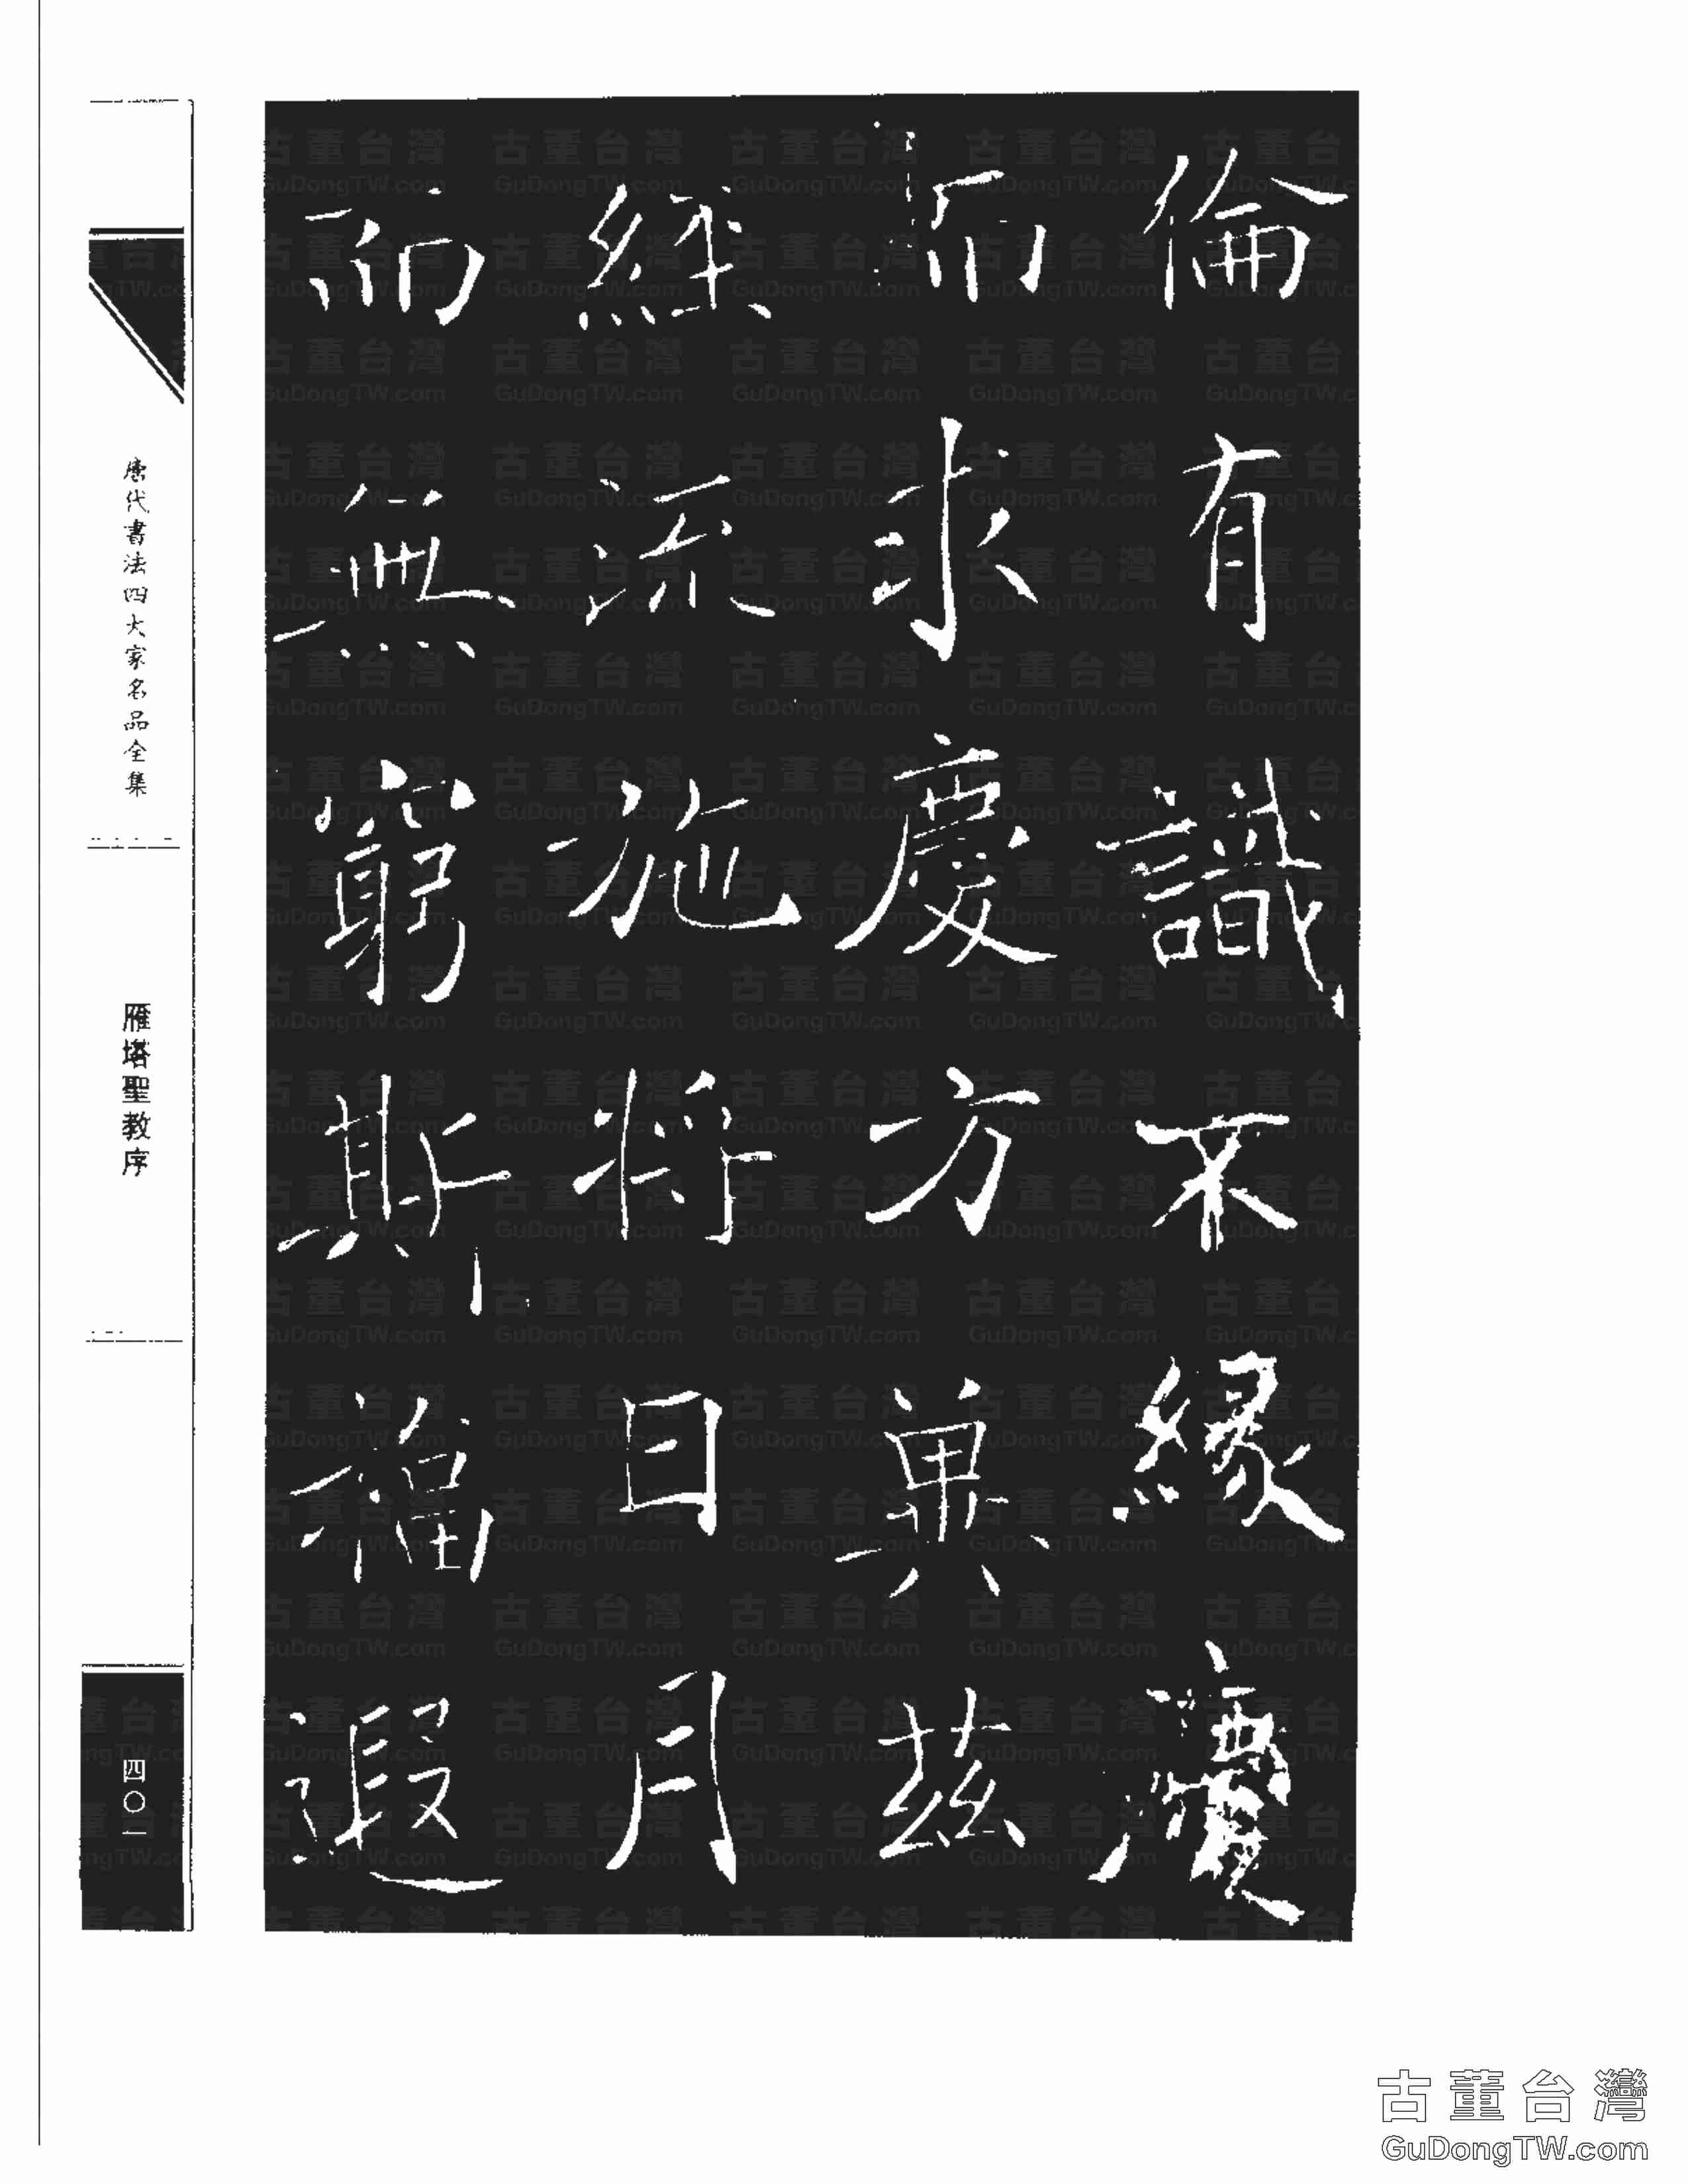 倫有識不緣慶
而求慶方冀茲
經流施將日月
而無窮斯福遐
唐代書法四大家名品全集
雁塔聖教序
四〇一
古董台灣
GuDongTW.com